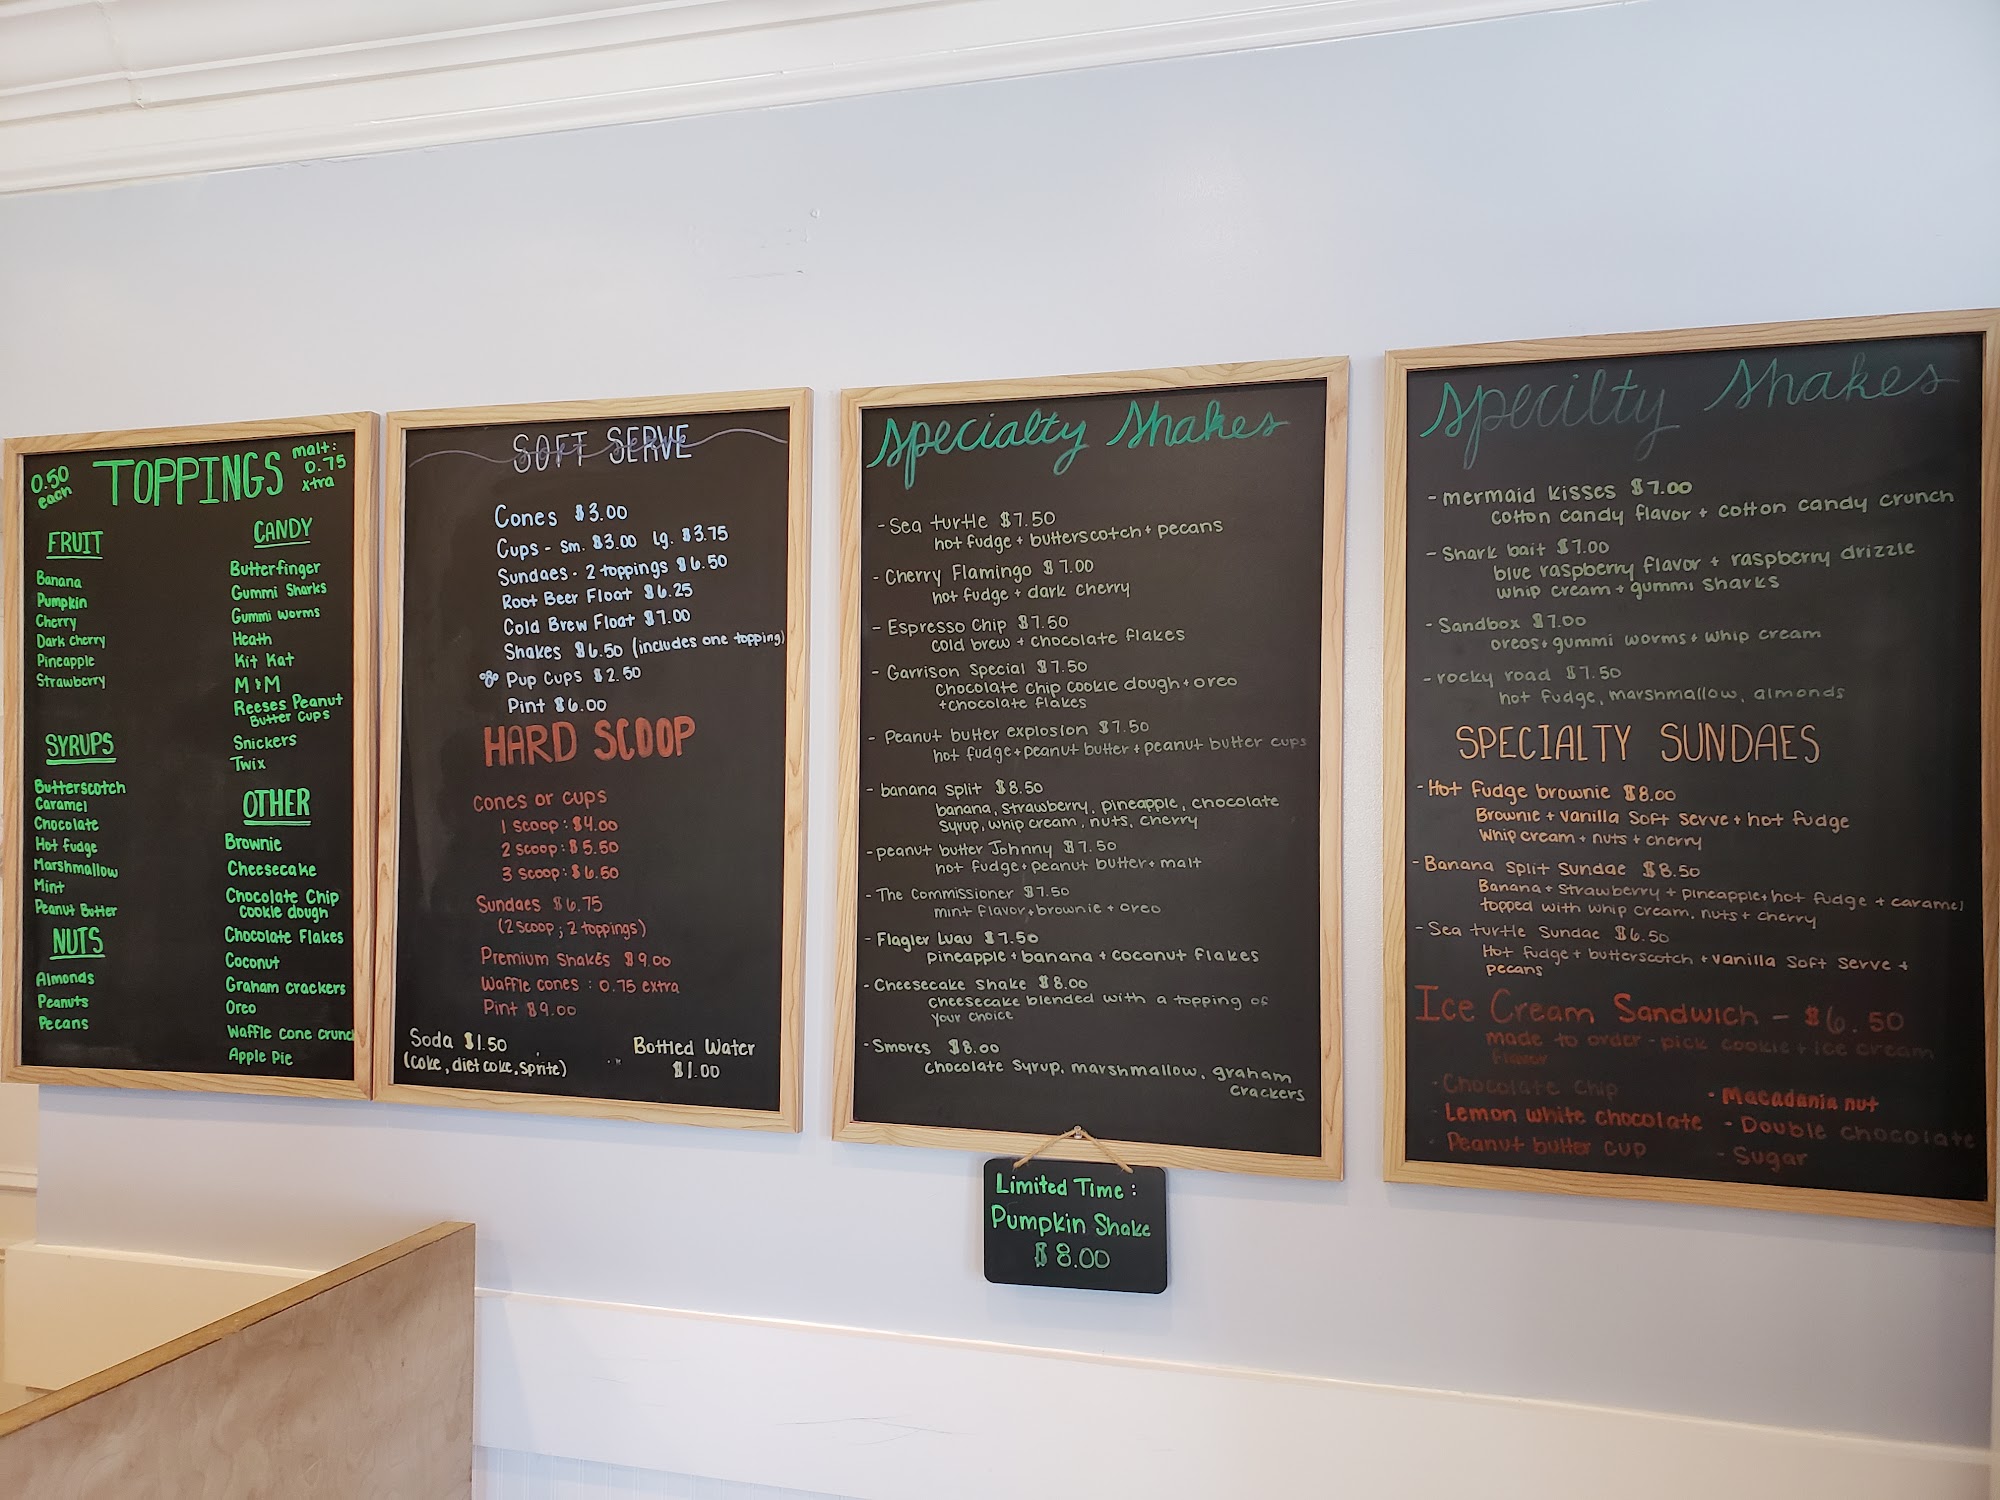 0.50
each
TOPPINGS
malt:
0.75
xtra
FRUIT
Banana
Pumpkin
Cherry
Dark cherry
Pineapple
Strawberry
SYRUPS
Butterscotch
Caramel
Chocolate
Hot fudge
Marshmallow
Mint
Peanut Butter
NUTS
Almonds
Peanuts
Pecans
CANDY
Butterfinger
Gummi Sharks
Gummi worms
Heath
Kit Kat
M&M
Reeses Peanut
Butter Cups
Snickers
Twix
OTHER
Brownie
Cheesecake
Chocolate Chip
cookie dough
Chocolate Flakes
Coconut
Graham crackers
Oreo
Waffle cone crunch
Apple Pie
SOFT SERVE
Cones $3.00
Cups - sm. $3.00 lg. $3.75
Sundaes - 2 toppings $6.50
Root Beer Float $6.25
Cold Brew Float $7.00
Shakes $6.50 (includes one topping)
Pup Cups $2.50
Pint $6.00
HARD SCOOP
Cones or cups
1 scoop: $4.00
2 scoop: $5.50
3 scoop: $6.50
Sundaes $6.75
(2 scoop; 2 toppings)
Premium Shakes $9.00
Waffle cones: 0.75 extra
Pint $9.00
Soda $1.50
(coke, diet coke, sprite)
Bottled Water
$1.00
Specialty Shakes
- Sea turtle $7.50
hot fudge + butterscotch + pecans
- Cherry Flamingo $7.00
hot fudge + dark cherry
- Espresso Chip $7.50
cold brew + chocolate flakes
- Garrison Special $7.50
Chocolate chip cookie dough + oreo
+ chocolate flakes
- Peanut butter explosion $7.50
hot fudge + peanut butter + peanut butter cups
- banana split $8.50
banana, strawberry, pineapple, chocolate
syrup, whip cream, nuts, cherry
- peanut butter Johnny $7.50
hot fudge + peanut butter + malt
- The Commissioner $7.50
mint flavor + brownie + oreo
- Flagler Luau $7.50
pineapple + banana + coconut flakes
- Cheesecake Shake $8.00
cheesecake blended with a topping of
your choice
- Smores $8.00
Chocolate syrup, marshmallow, graham
crackers
Limited Time:
Pumpkin Shake
$8.00
Specilty Shakes
- mermaid kisses $7.00
cotton candy flavor + cotton candy crunch
- Shark bait $7.00
blue raspberry flavor + raspberry drizzle
whip cream + gummi sharks
- Sandbox $7.00
oreos + gummi worms + whip cream
- rocky road $7.50
hot fudge, marshmallow, almonds
SPECIALTY SUNDAES
- Hot fudge brownie $8.00
Brownie + vanilla soft serve + hot fudge
whip cream + nuts + cherry
- Banana split Sundae $8.50
Banana + strawberry + pineapple + hot fudge + caramel
topped with whip cream, nuts + cherry
- Sea turtle Sundae $6.50
Hot fudge + butterscotch + vanilla soft serve +
pecans
Ice Cream Sandwich - $6.50
made to order - pick cookie + ice cream
flavor
- Chocolate chip
- Lemon white chocolate
- Peanut butter cup
- Macadania nut
- Double chocolate
- Sugar